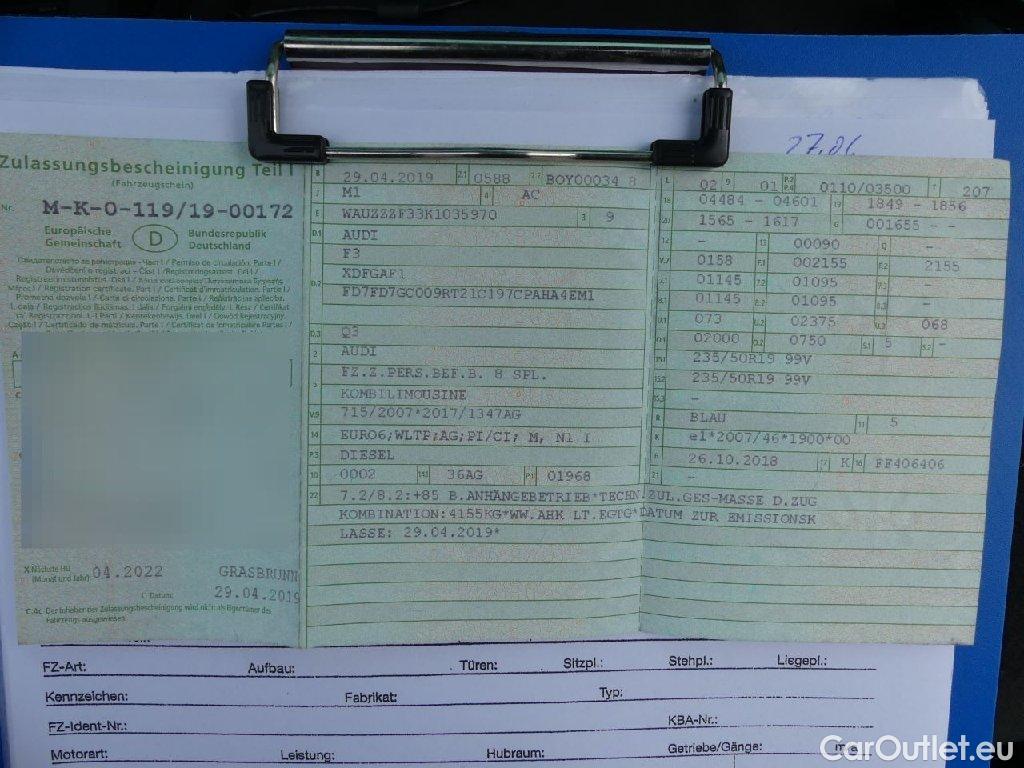 27.06
Zulassungsbescheinigung Teil I
(Fahrzeugschein)
Nr. M-K-0-119/19-00172
Europäische Gemeinschaft D Bundesrepublik Deutschland
X Nächste HU (Monat und Jahr) 04.2022
GRASBRUNN
I Datum: 29.04.2019
C.4c Der Inhaber der Zulassungsbescheinigung wird nicht als Eigentümer des
Fahrzeugs ausgewiesen.
B 29.04.2019 2.1 0588 2.2 BOY00034 8
J M1 4 AC
E WAUZZZF33K1035970 3 9
D.1 AUDI
F3
XDFGAF1
D.2 FD7FD7GC009RT21C197CPAHA4EM1
D.3 Q3
2 AUDI
5 FZ.Z.PERS.BEF.B. 8 SPL.
KOMBILIMOUSINE
V.9 715/2007*2017/1347AG
14 EURO6;WLTP;AG;PI/CI; M, N1 I
P.3 DIESEL
10 0002 14.1 36AG P.1 01968
22 7.2/8.2:+85 B.ANHÄNGEBETRIEB*TECHN.ZUL.GES-MASSE D.ZUG
KOMBINATION:4155KG*WW.AHK LT.EGTG*DATUM ZUR EMISSIONSK
LASSE: 29.04.2019*
L 02 9 01 P.2 P.4 0110/03500 T 207
18 04484 - 04601 19 1849 - 1856
20 1565 - 1617 G 001655 - -
12 - 13 00090 Q -
V.7 0158 F.1 002155 F.2 2155
7.1 01145 7.2 01095 -
8.1 01145 8.2 01095 -
U.1 073 U.2 02375 U.3 068
O.1 02000 O.2 0750 S.1 5 S.2 -
15.1 235/50R19 99V
15.2 235/50R19 99V
15.3 -
R BLAU 11 5
K e1*2007/46*1900*00
6 26.10.2018 17 K 16 FF406406
21 -
FZ-Art: Aufbau: Türen: Sitzpl.: Stehpl.: Liegepl.:
Kennzeichen: Fabrikat: Typ:
FZ-Ident-Nr.: KBA-Nr.:
Motorart: Leistung: Hubraum: Getriebe/Gänge:
CarOutlet.eu